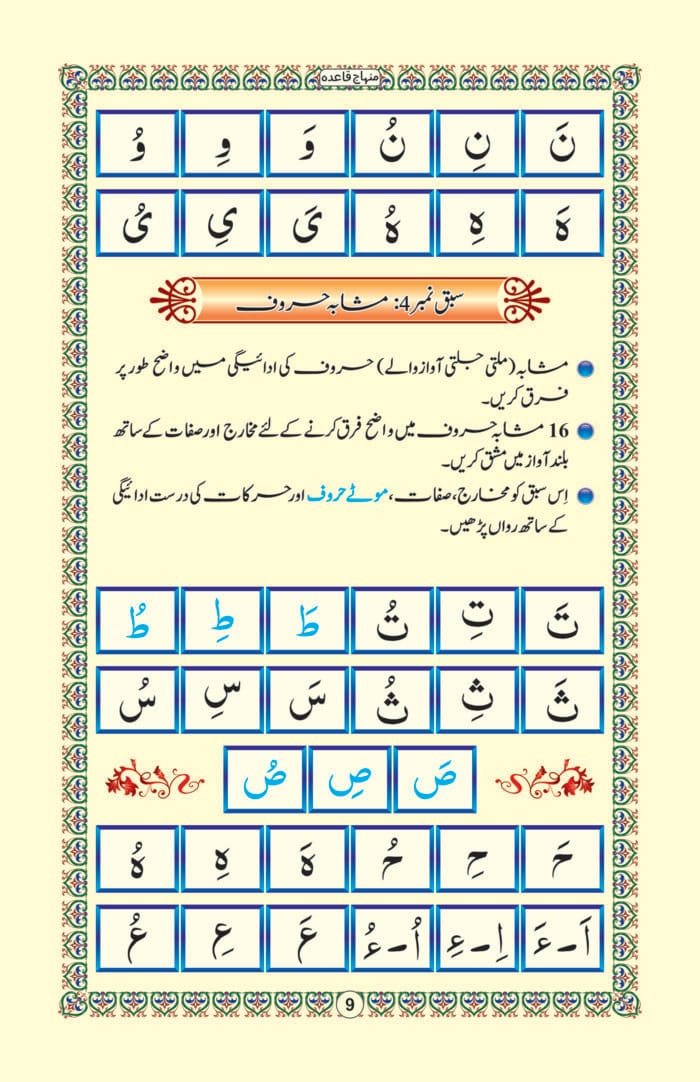 منہاج قاعدہ
نَ نِ نُ وَ وِ وُ
ہَ ہِ ہُ یَ یِ یُ
سبق نمبر 4: مشابہ حروف
مشابہ (ملتی جلتی آواز والے) حروف کی ادائیگی میں واضح طور پر
فرق کریں۔
16 مشابہ حروف میں واضح فرق کرنے کے لئے مخارج اور صفات کے ساتھ
بلند آواز میں مشق کریں۔
اِس سبق کو مخارج، صفات، موٹے حروف اور حرکات کی درست ادائیگی
کے ساتھ رواں پڑھیں۔
تَ تِ تُ طَ طِ طُ
ثَ ثِ ثُ سَ سِ سُ
صَ صِ صُ
حَ حِ حُ ہَ ہِ ہُ
اَ-ءَ اِ-ءِ اُ-ءُ عَ عِ عُ
9